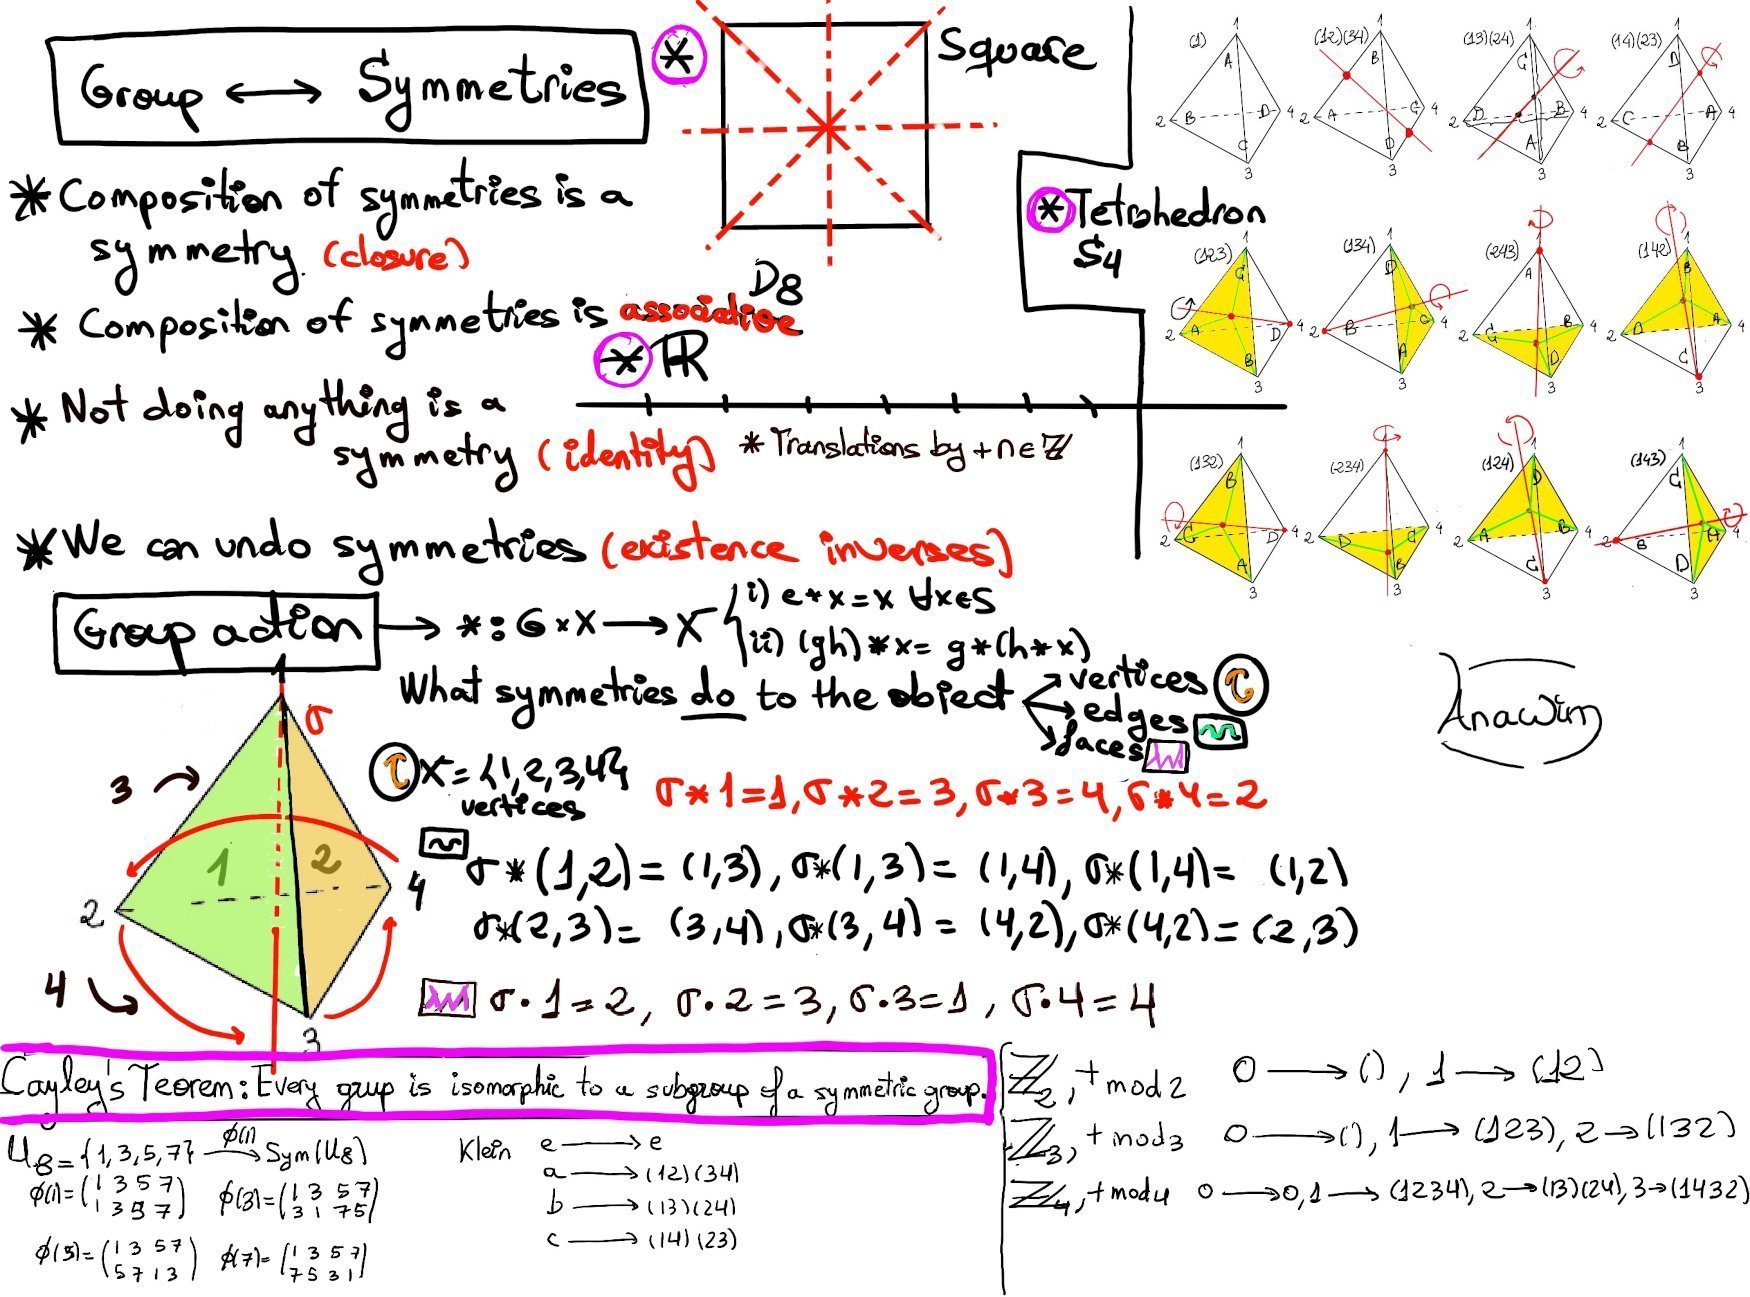 Group ⟷ Symmetries
* Composition of symmetries is a
symmetry. (closure)
* Composition of symmetries is associative
* Not doing anything is a
symmetry (identity)
* We can undo symmetries (existence inverses)
* Square
D8
* ℝ
* Translations by +n∈ℤ
* Tetrahedron
S4
(1) (12)(34) (13)(24) (14)(23)
(123) (134) (243) (142)
(132) (234) (124) (143)
Group action → *: G×X → X { i) e*x=x ∀x∈S
ii) (gh)*x= g*(h*x)
What symmetries do to the object
vertices τ
edges
faces
Anawim
1
σ
3
1 2
2
4
4
3
τ X={1,2,3,4}
vertices
σ*1=1, σ*2=3, σ*3=4, σ*4=2
σ*(1,2)= (1,3), σ*(1,3)= (1,4), σ*(1,4)= (1,2)
σ*(2,3)= (3,4), σ*(3,4)= (4,2), σ*(4,2)= (2,3)
σ·1=2, σ·2=3, σ·3=1, σ·4=4
Cayley's Teorem: Every grup is isomorphic to a subgroup of a symmetric group.
U8={1,3,5,7} ϕ(1)→ Sym(U8)
ϕ(1)=(1 3 5 7
1 3 5 7)
ϕ(3)=(1 3 5 7
3 1 7 5)
ϕ(5)=(1 3 5 7
5 7 1 3)
ϕ(7)=(1 3 5 7
7 5 3 1)
Klein e → e
a → (12)(34)
b → (13)(24)
c → (14)(23)
ℤ2, + mod 2 0 → (), 1 → (12)
ℤ3, + mod 3 0 → (), 1 → (123), 2 → (132)
ℤ4, + mod 4 0 → (), 1 → (1234), 2 → (13)(24), 3 → (1432)